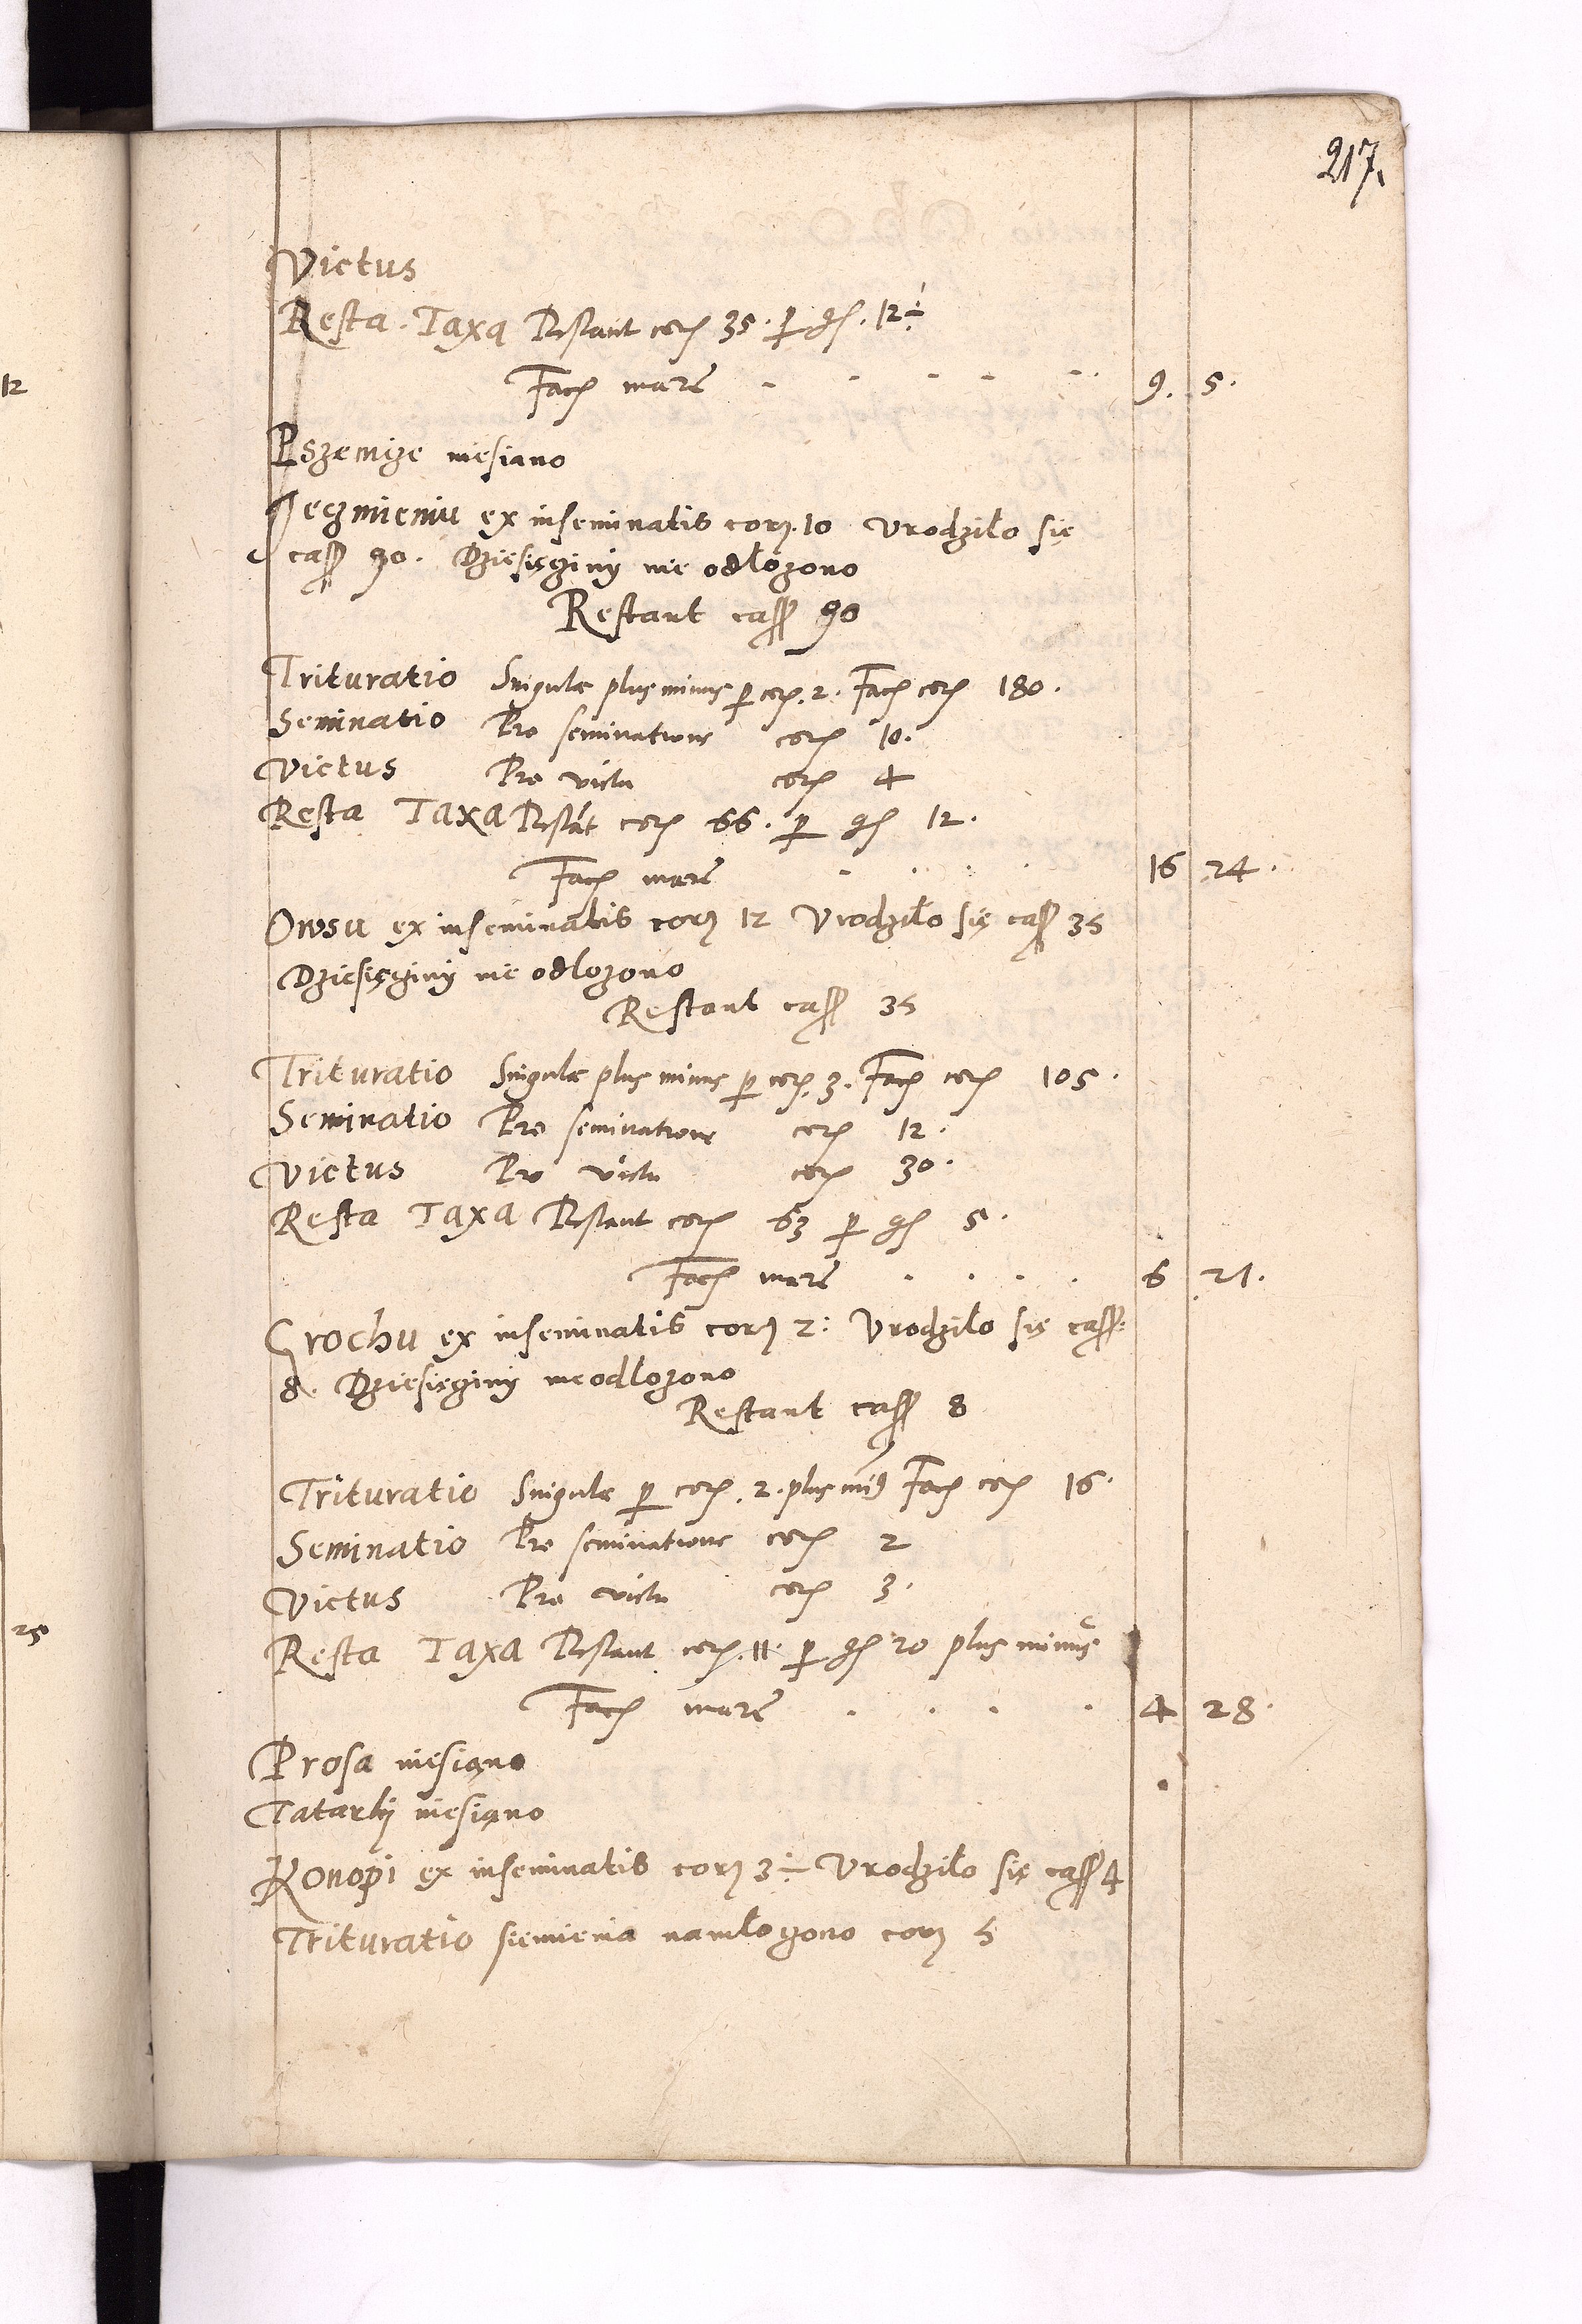 217.
Victus
Resta Taxa Restant cor 35. p gr. 12 ÷
Facit marc 9. 5.
Pszenice niesiano
Jęczmieniu ex inseminatis cor. 10 Vrodziło się
cass 90. Dziesięciny nie odłożono
Restant cass 90
Trituratio Singulae plus minus p cor. 2. Facit cor 180.
Seminatio Pro seminatione cor 10.
Victus Pro victu cor 4
Resta Taxa Restāt cor 66. p gr 12.
Facit marc 16 24.
Owsa ex inseminatis cor 12 Vrodziło się cass 35
Dziesięciny nie odłozono
Restant cass 35
Trituratio Singulae plus minus p cor. 3. Facit cor 105.
Seminatio Pro seminatione cor 12.
Victus Pro victu cor 30.
Resta Taxa Restant cor 63 p gr 5.
Facit marc 6 21.
Grochu ex inseminatis cor 2: Vrodziło się cass:
8. Dziesięciny nie odłozono
Restant cass 8
Trituratio Singulae p cor. 2. plus min9 Facit cor 16.
Seminatio Pro seminatione cor 2
Victus Pro victu cor 3.
Resta Taxa Restant cor. 11. p gr 20 plus minus.
Facit marc 4 28.
Prosa niesiąno
Tatarky niesiąno
Konopi ex inseminatis cor 3 ÷ Vrodziło się cass 4
Trituratio siemienia namłoczono cor 5
12
25